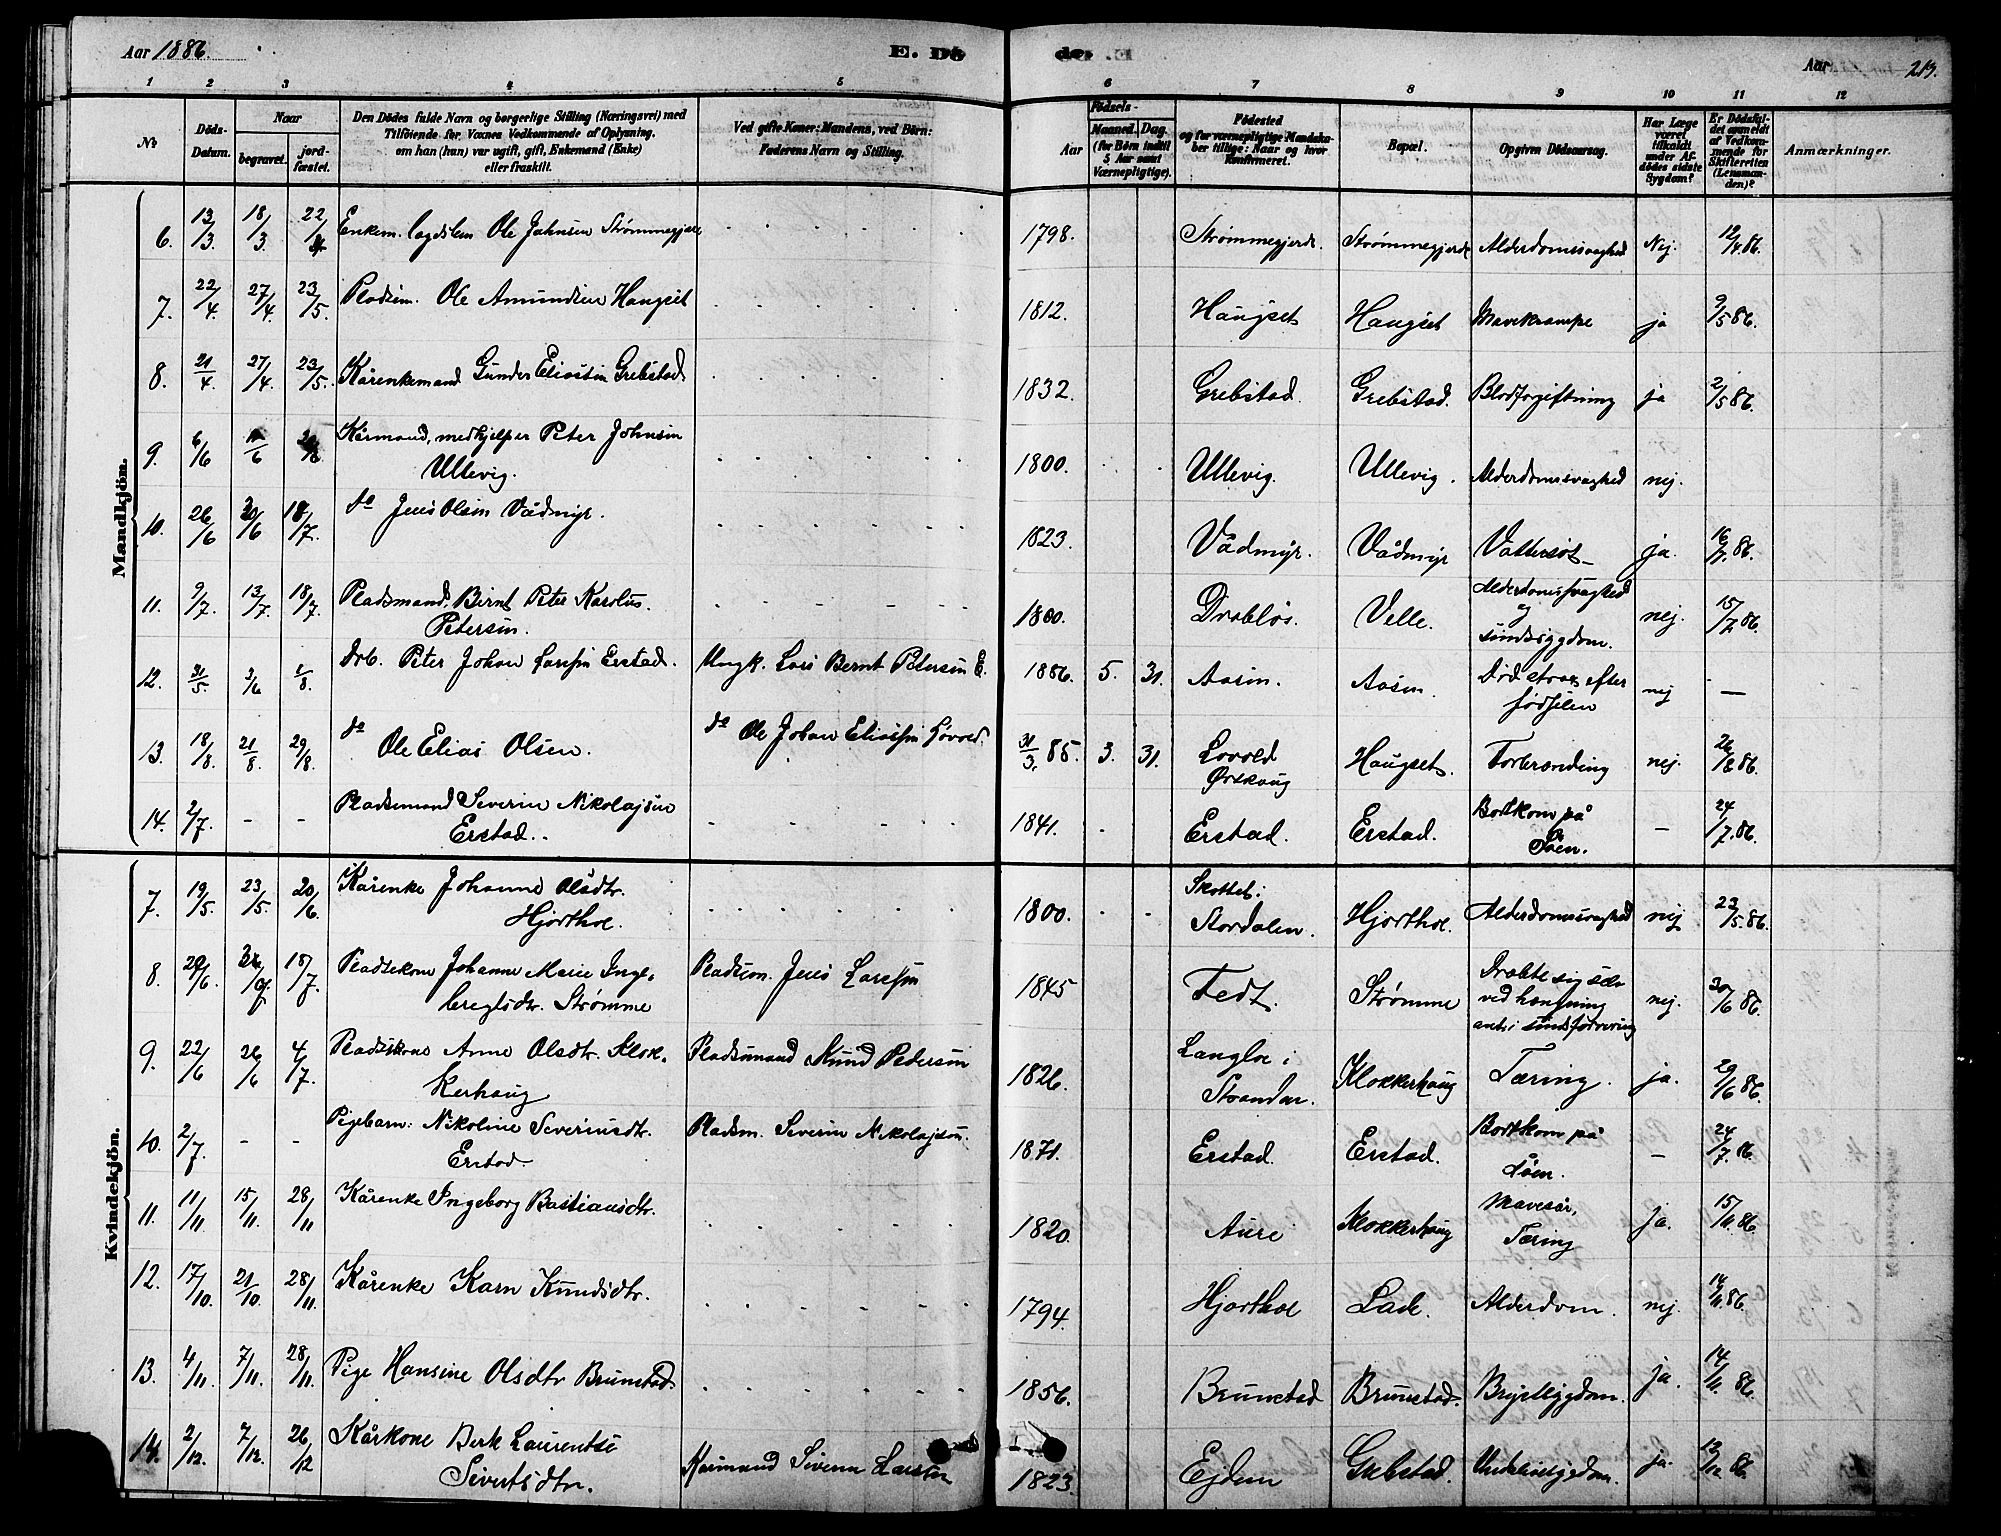 Aar 1886.
E. Dö
de.
Aar
213.
1 2 3 4 5 6 7 8 9 10 11 12
No
Döds-Datum.
Naar
begravet.
jord-fæstet.
Den Dödes fulde Navn og borgerlige Stilling (Næringsvei) med
Tilföiende for Voxnes Vedkommende af Oplysning,
om han (hun) var ugift, gift, Enkemand (Enke)
eller fraskilt.
Ved gifte Koner: Mandens, ved Börn:
Faderens Navn og Stilling.
Aar
Födsels-
Maaned. Dag.
(for Börn indtil
5 Aar samt
Værnepligtige).
Födested
og for værnepligtige Mandska-
ber tillige: Naar og hvor
Konfirmeret.
Bopæl.
Opgiven Dödsaarsag.
Har Læge
været
tilkaldt
under Af-
dödes sidste
Sygdom?
Er Dödsfal-
det anmeldt
af Vedkom-
mende for
Skifteretten
(Lensman-
den)?
Anmærkninger.
Mandkjön.
6. 13/3 18/3 22/4 Enkem. lægdslem Ole Johnsen Strømmegjere 1798. Strømmegjerde. Strømmegjerde Alderdomssvaghed Nej. 12/4 86.
7. 22/4 27/4 23/5 Pladsm. Ole Amundsen Haugset 1812. Haugset Haugset Mavekrampe ja 9/5 86.
8. 21/4 27/4 23/5. Kårenkemand Gunder Eliassen Grebstad 1832. Grebstad. Grebstad. Blodforgiftning ja 2/5 86.
9. 6/6 11/6 Kårmand, medhjelper Peter Johnsen
Ullevig. 1800. Ullevig. Ullevig. Alderdomssvaghed nej.
10. 26/6 30/6 18/7. do Jens Olsen Vådmyr. 1823. Vådmyr. Vådmyr Vattersot ja. 16/7 86.
11. 9/7. 13/7. 18/7. Pladsmand. Bernt Peter Karolus.
Petersen. 1800. Drabløs. Velle. Alderdomssvaghed
og
sindssygdom. nej. 15/7 86.
12. 31/5. 3/6 1/8. Drb. Peter Johan Larssen Erstad. Ungk. Lars Bernt Petersen E. 1886. 5. 31. Aasen. Aasen. Død strax efter
fødselen nej —
13. 18/8 21/8 29/8. do Ole Elias Olsen. do Ole Johan Eliassen Løvold. 31/3. 85. 3. 31. Lovold
Ørskoug Haugset. Forbrænding nej. 26/8 86.
14. 2/7. - - Pladsmand Severin Nikolajsen
Erstad. 1841. Erstad. Erstad. Bortkom på
Søen. — 24/7. 86.
Kvindekjön.
7. 19/5. 23/5. 20/6 Kårenke Johanne Olsdtr.
Hjorthol. 1800. Skottet i
Stordalen. Hjorthol. Alderdomssvaghed nej 23/5. 86.
8. 29/6. 18/7. Pladsekone Johanne Marie Inge-
bregtsdtr. Strømme Pladsm. Jens Larssen 1845 Fedt. Strømme Dræbte sig selv
ved hængning
ant. i sindsforvirring nej. 30/6 86.
9. 22/6 26/6 4/7. Pladsekone Anne Olsdtr. Klok-
kerhaug Pladsmand Knud Pedersen 1826. Langlo i
Strandar. Klokkerhaug Tæring. ja. 29/6 86.
10. 2/7. - - Pigebarn: Nikoline Severinsdtr.
Erstad. Pladsm. Severin Nikolajsen. 1871. Erstad. Erstad. Bortkom på
Søen. — 24/7. 86
11. 11/11 15/11. 28/11 Kårenke Ingeborg Bastiansdtr. 1820. Aure Klokkerhaug Mavesår,
Tæring ja. 15/11. 86
12. 17/10. 21/10. 28/11. Kårenke Karn Knudsdtr. 1794. Hjorthol Lade. Alderdom. nej. 14/11. 86.
13. 4/11. 7/11. 28/11. Pige Hansine Olsdtr Brunstad. 1856. Brunstad Brunstad. Brystsygdom. ja. 14/11 86.
14. 2/12. 7/12. 26/12 Kårkone Berte Laurentse
Sivertsdtr. Kårmand Siver Larsen 1823. Ejdem Grebstad. Underlivssygdom. ja. 13/12 86.